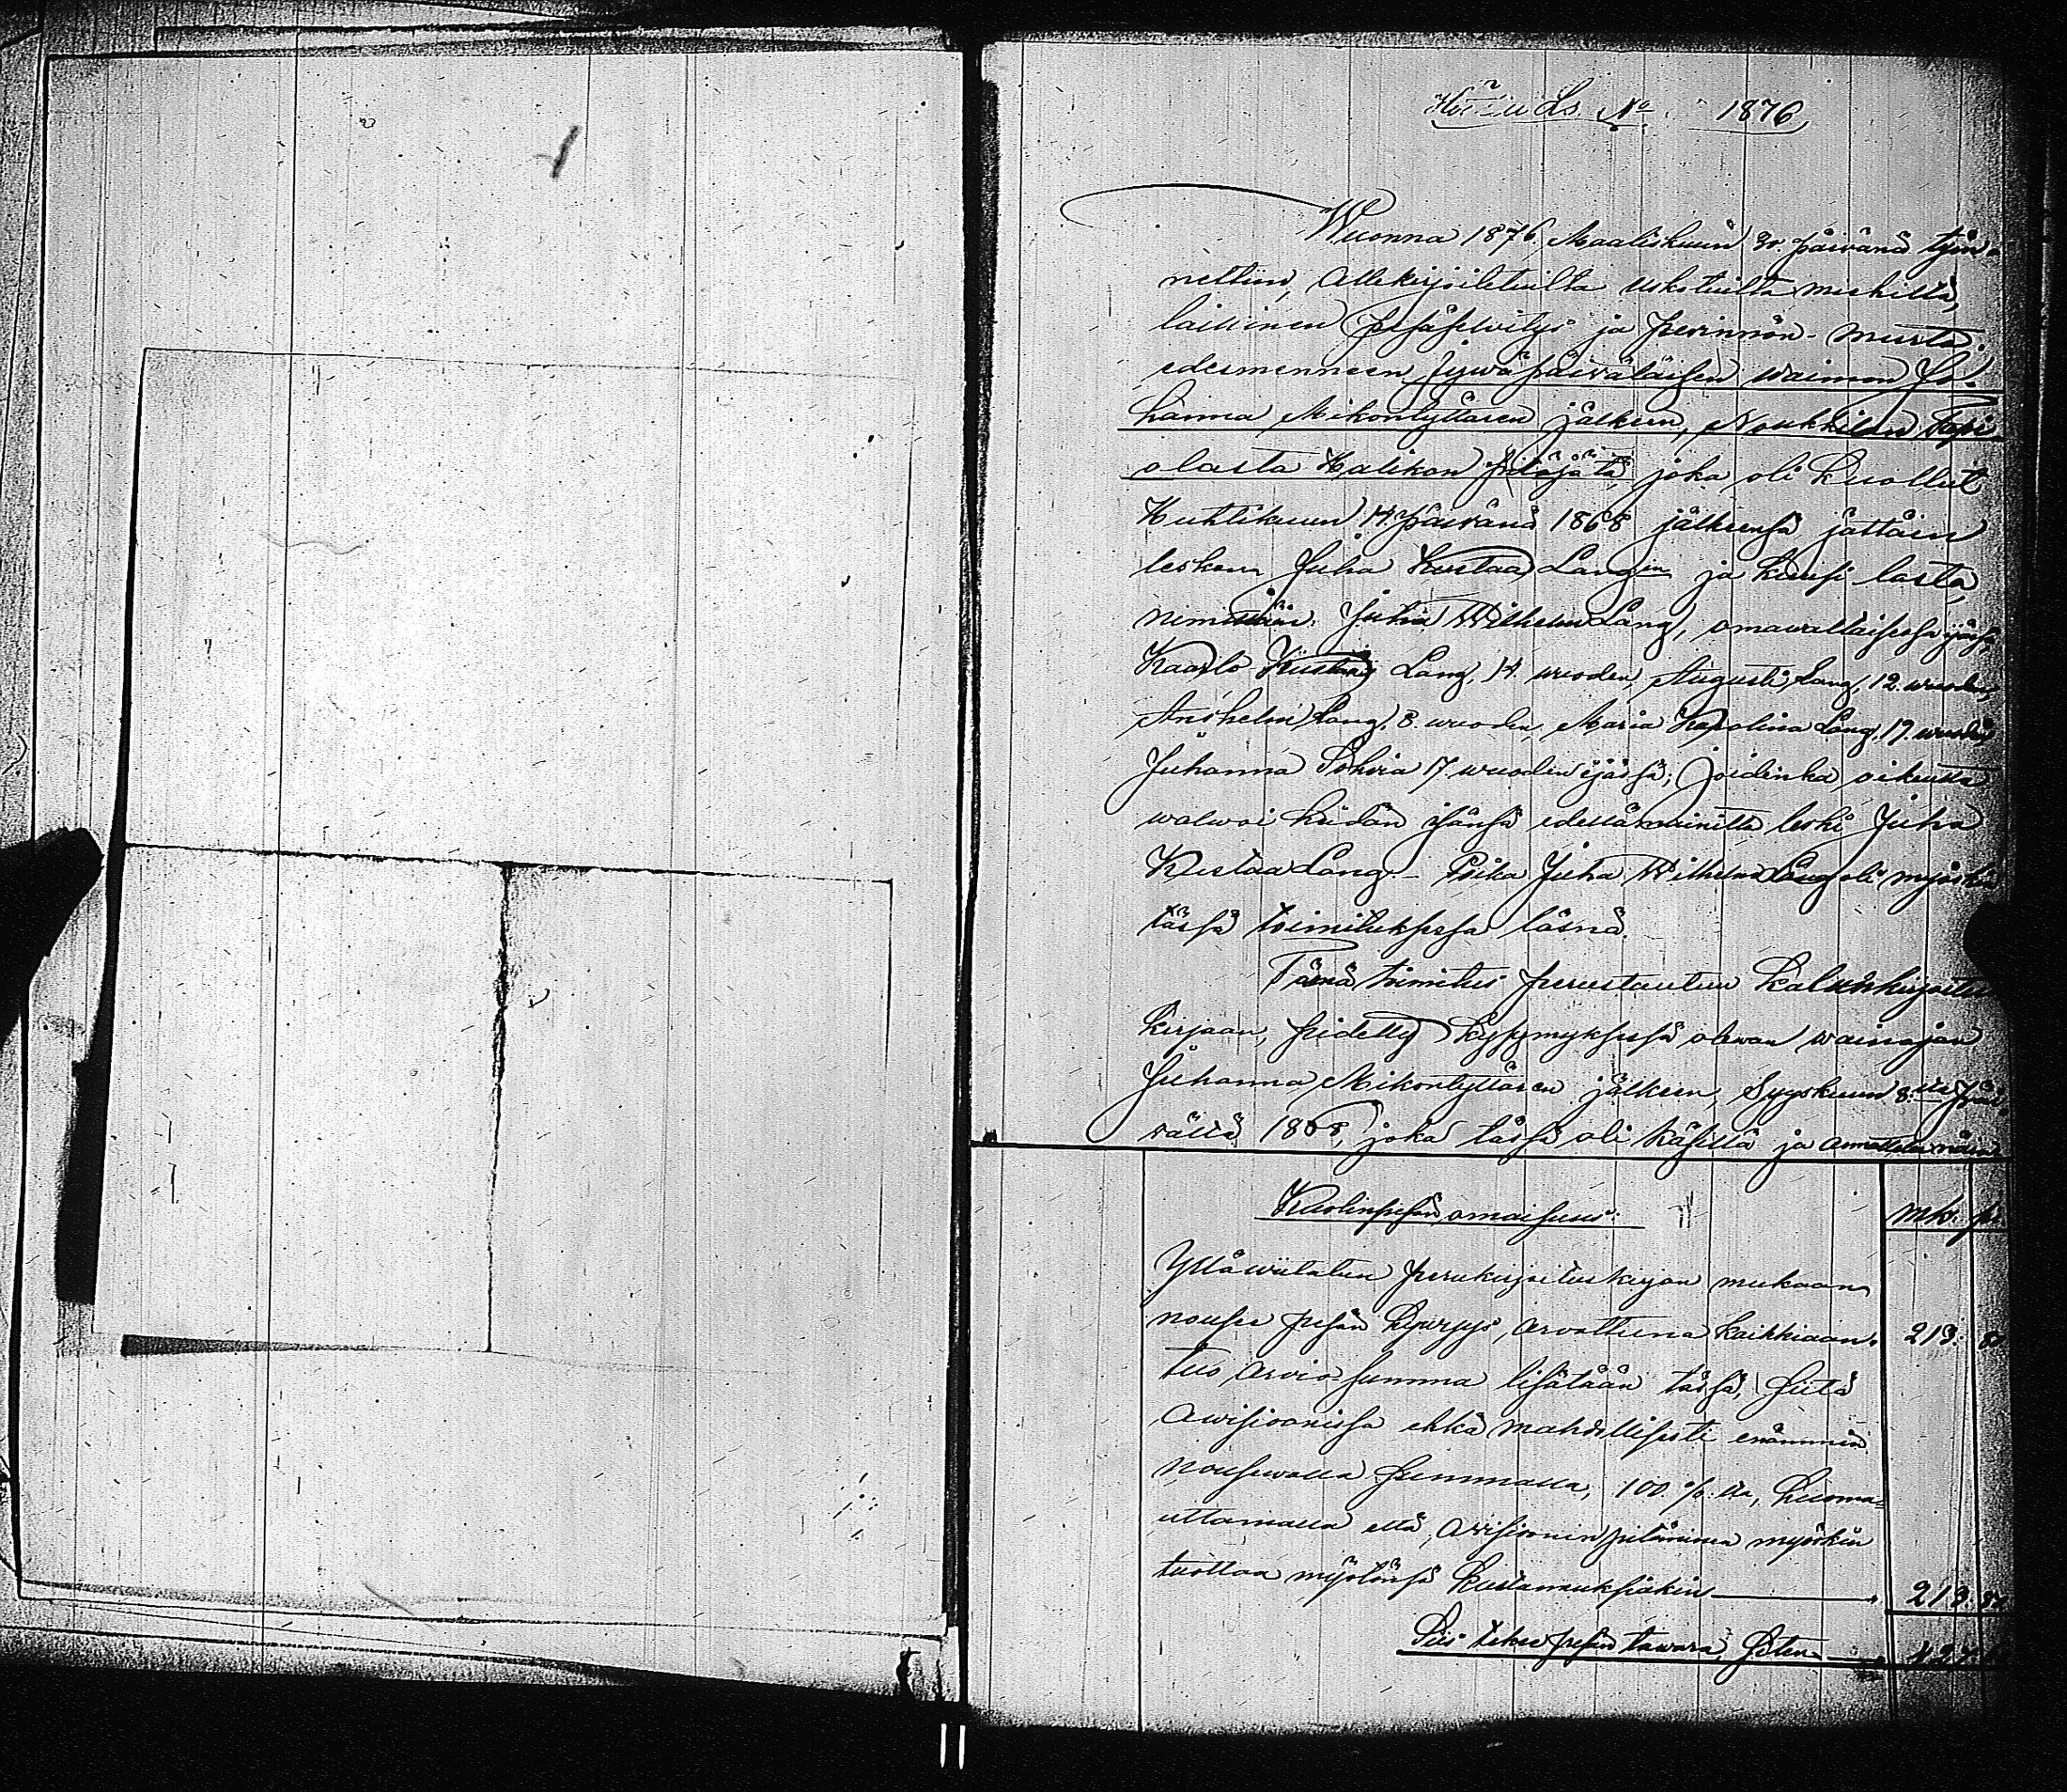 1
Nº 1876
Wuonna 1876 Maaliskuun 30 päivänä työn-
nettiin, allekirjoitetuilta uskotuilta miehiltä,
laillinen pesäselvitys ja perinnön-
edesmenneen Jywäpäiväläisen waimon Jo-
hanna Mikontyttären jälkeen, Noukkilan Topi-
olasta Halikon pitäjätä joka oli kuollut
Huhtikuun 14. päivänä 1868 jälkeensä jättäin
lesken Juha Kustaa Langin ja kuusi lasta,
nimittäin: Juha Wilhelm Lang, omawaltaisessa ijässä,
Kaarlo Kustawi Lang, 14 wuoden, Augusti Lang, 12. wuoden,
Anshelm Lang, 8. wuoden, Maria Karolina Lang, 19. wuoden
Juhanna Sohvia 17 wuoden ijässä; joidenka oikeutta
walwoi heidän isänsä edellämainittu leski Juha
Kustaa Lang. Poika Juha Wilhelm Lang oli myöskin
tässä toimituksessa läsnä.
Tämä toimitus perustautuu kalunkirjoitus
kirjaan, pidetty kysymyksessä olewan wainajan
Juhanna Mikontyttären jälkeen, Syyskuun 8. päi-
vältä 1868, joka tässä oli käsillä ja
Kuolinpesän omaisuus: mk. pi.
Ylläwiitatun perukirjoituskirjan mukaan
nousee pesän arvattuna kaikkiaan. 213.
tus arvio summa lisätään tässä, siitä
awisioonissa ehkä mahdollisesti enämmin
nousewalla summalla, 100 %:lla, huoma-
uttamalla että, awisioonin pitäminen myöskin
tuottaa myötänsä kustannuksiakin 213.
Siis tekee pesän tawara Siten